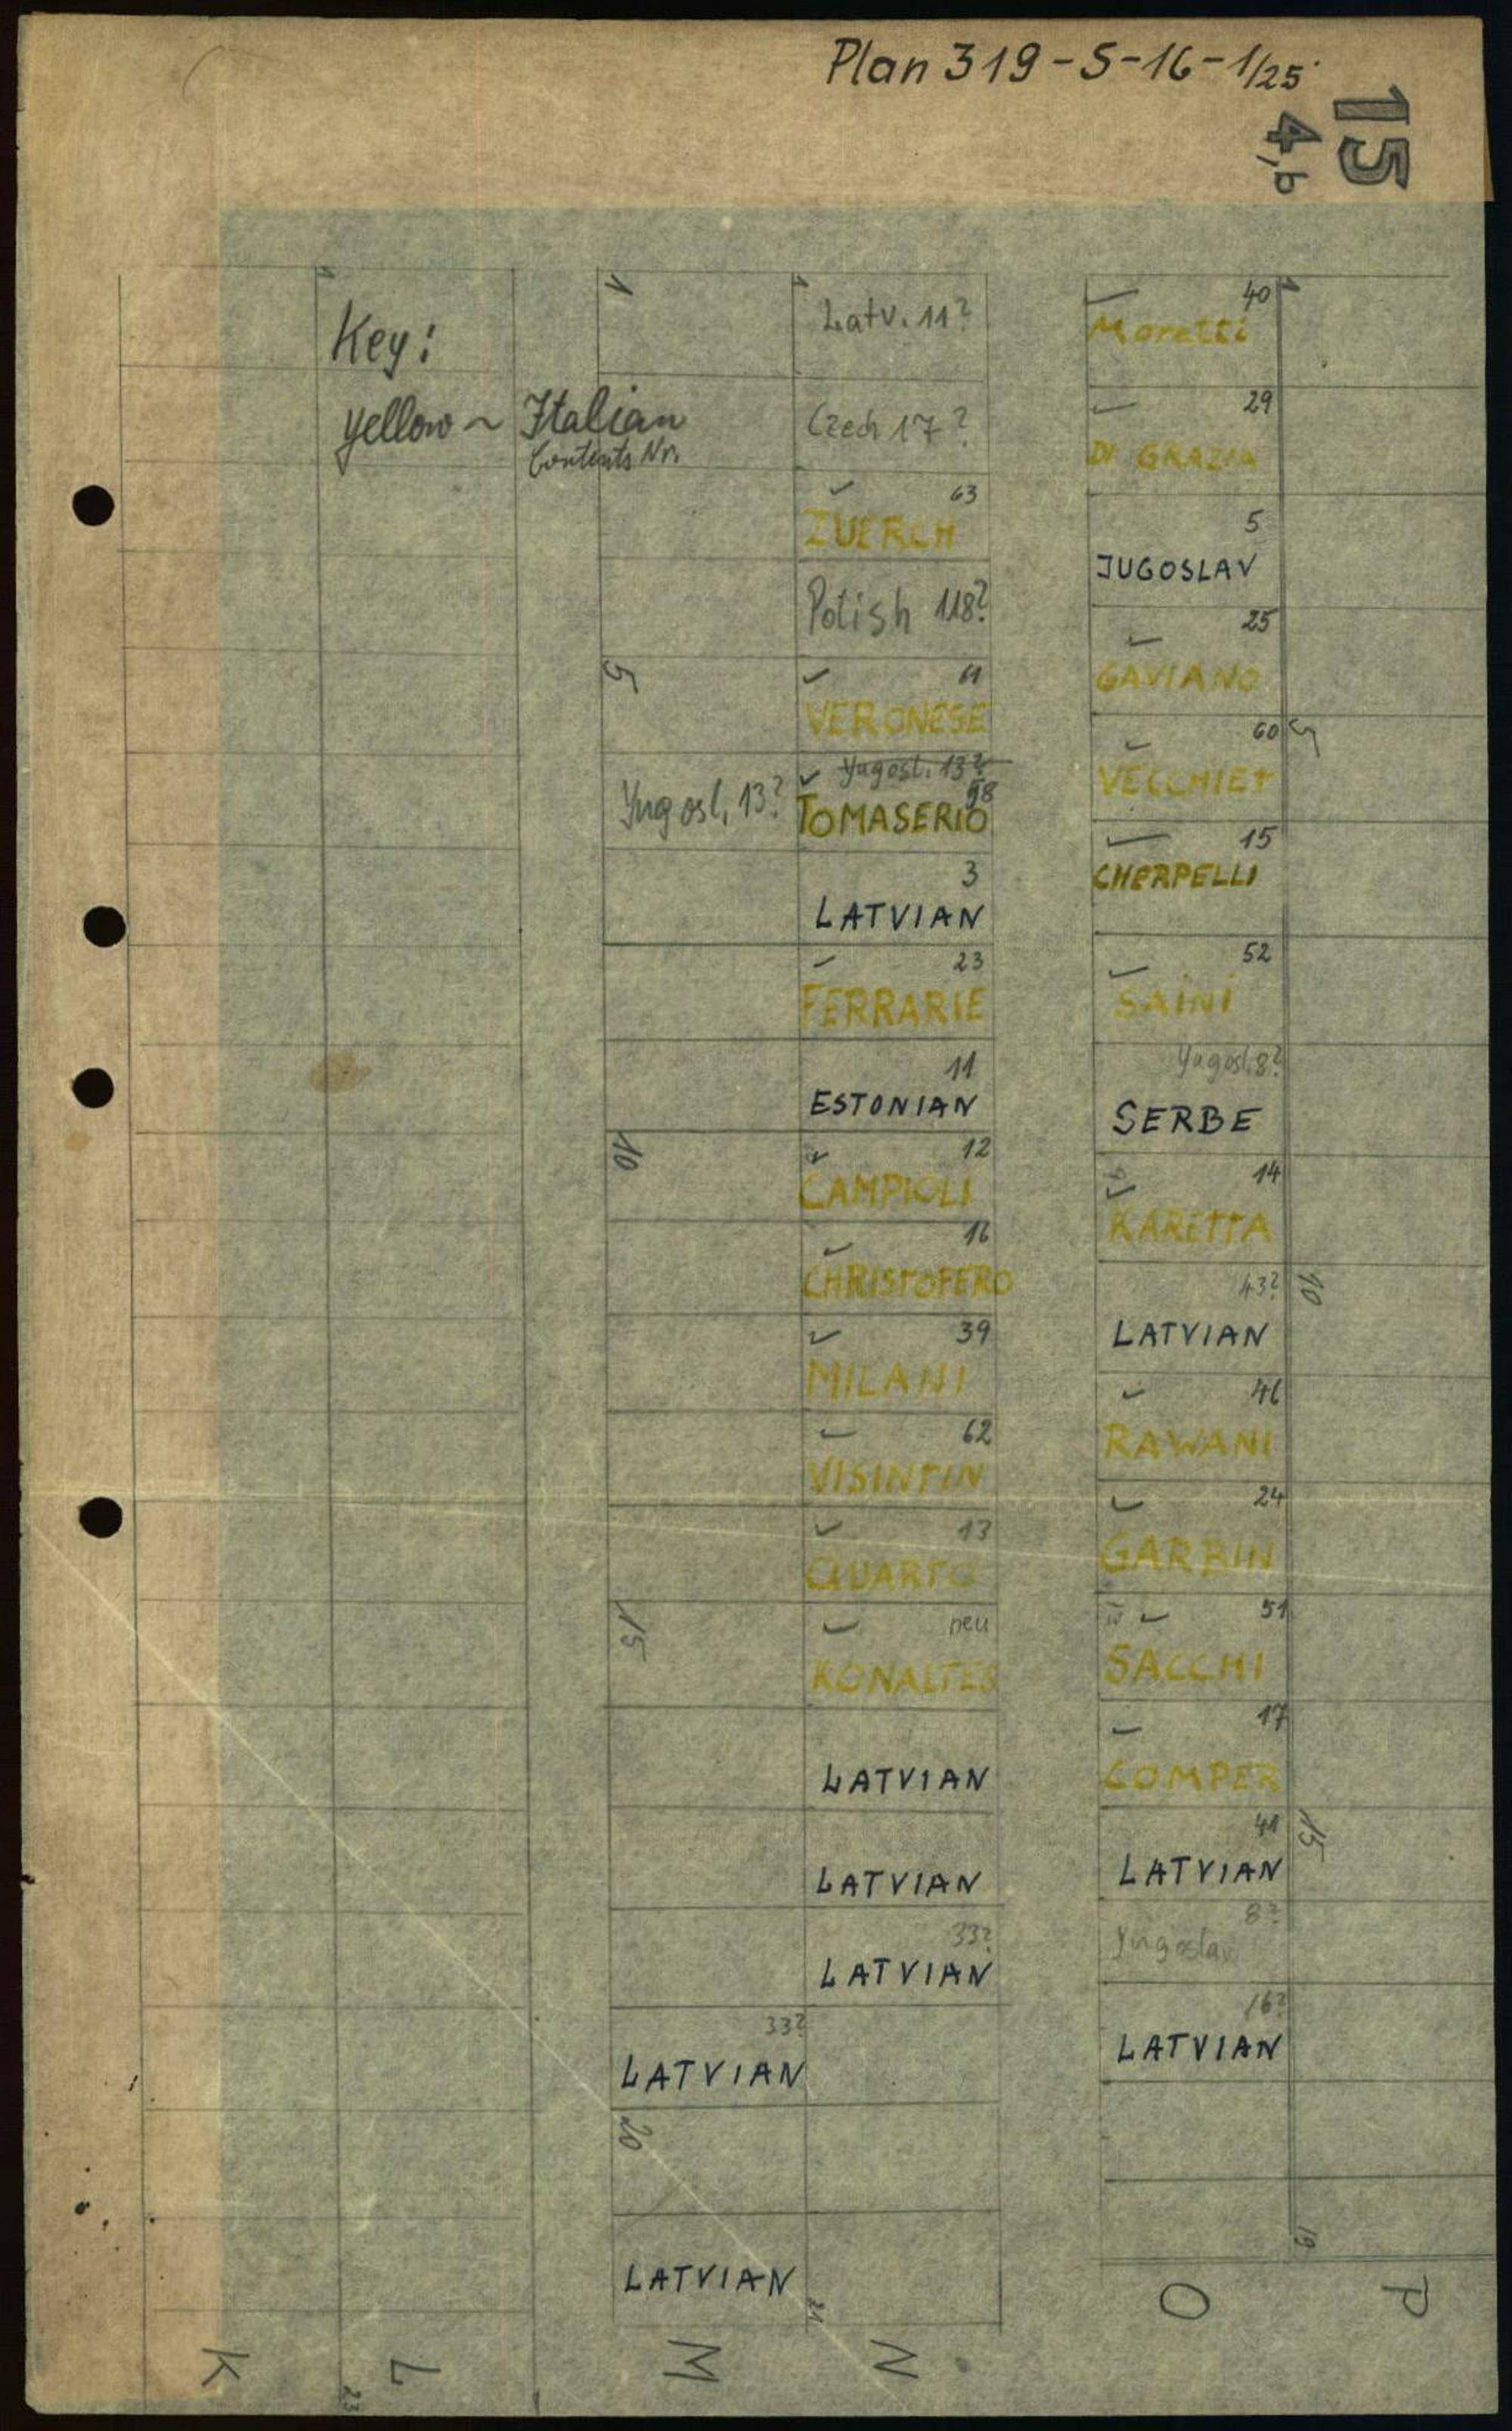 Plan 319-S-16-1/25
15
4,b
Key:
yellow ~ Italian
Contents Nr.
1
1
1
5
Yugosl, 13?
10
15
33?
LATVIAN
20
LATVIAN
Latv. 11?
Czech 17?
63
ZUERCH
Polish 118?
61
VERONESE
Yugosl. 13?
58
TOMASERIO
3
LATVIAN
23
FERRARIE
11
ESTONIAN
12
CAMPIOLI
16
CHRISTOFERO
39
MILANI
62
VISINTIN
13
QUARTO
neu
KONALTES
LATVIAN
LATVIAN
33?
LATVIAN
21
40
Moretti
29
DI GRAZIA
5
JUGOSLAV
25
GAVIANO
60
VECCHIET
15
CHERPELLI
52
SAINI
Yugosl. 8?
SERBE
14
KARETTA
43?
LATVIAN
46
RAWANI
24
GARBIN
51
SACCHI
17
COMPER
41
LATVIAN
8?
Yugoslav
16?
LATVIAN
1
5
10
15
19
K
L
23
M
N
O
P